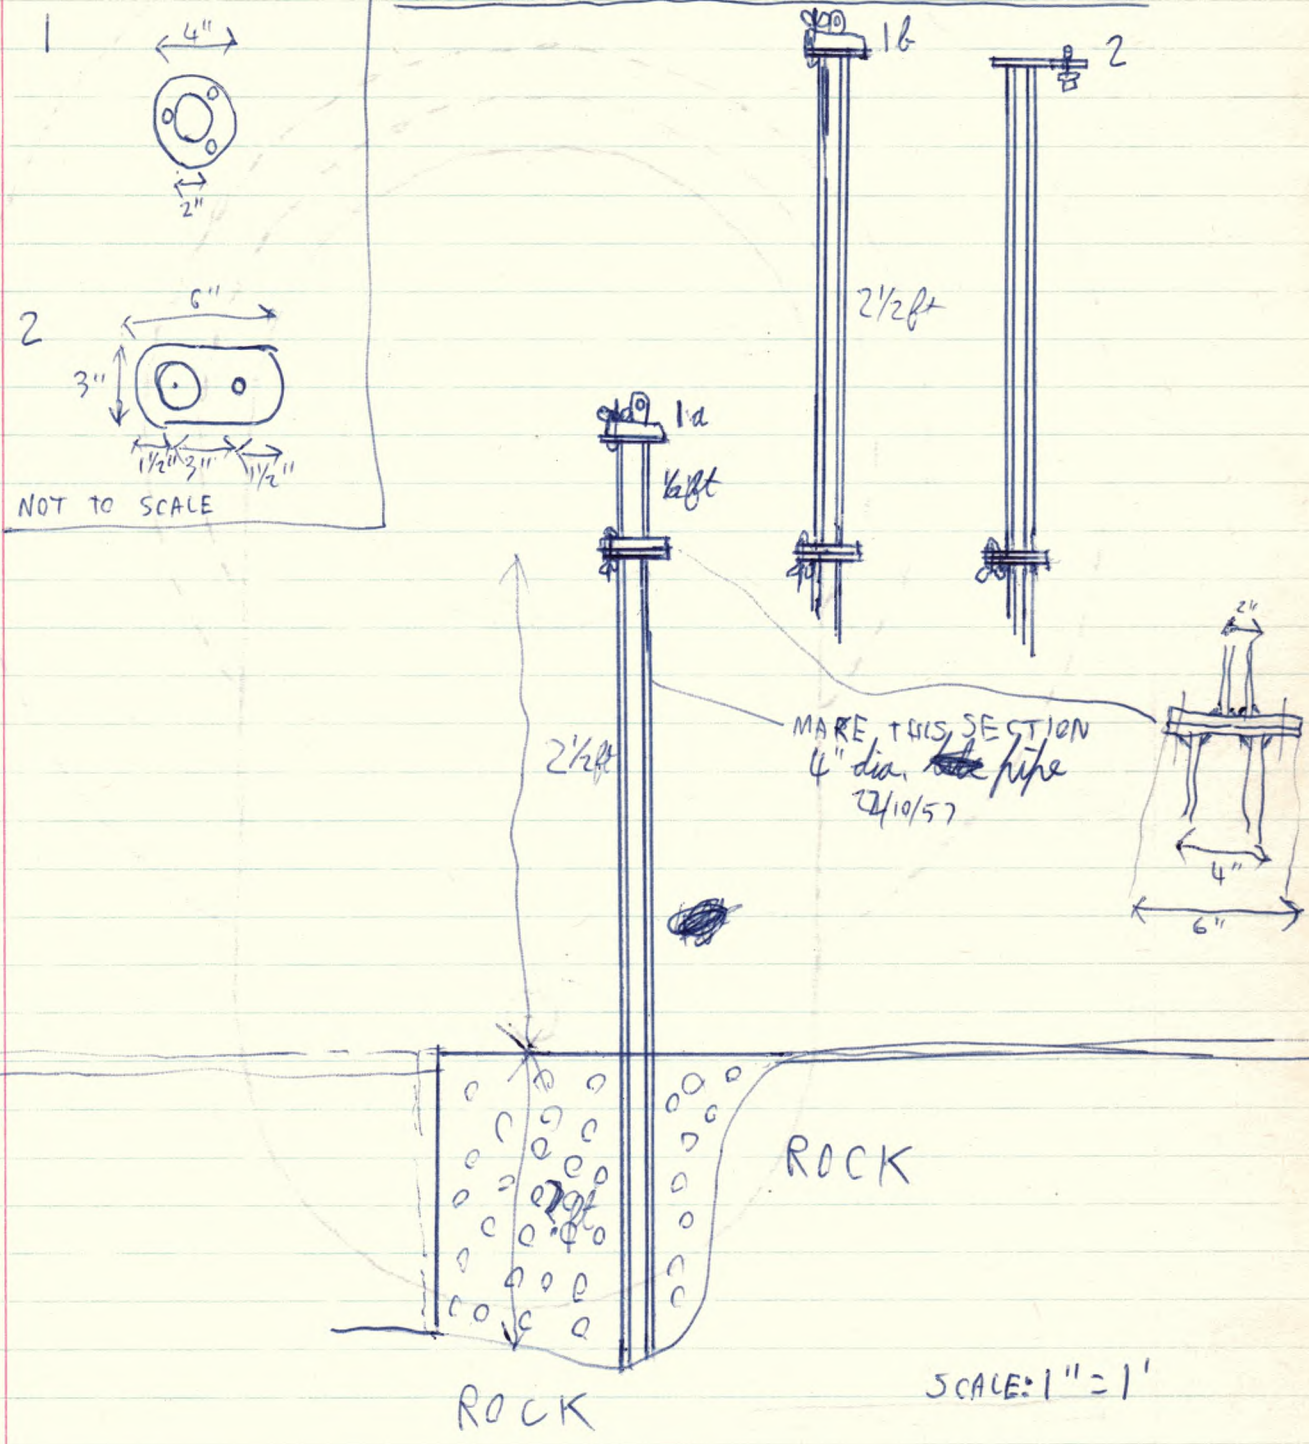 1
4"
2"
2
6"
3"
1½" 3" 1½"
NOT TO SCALE
1b
2
2½ft
1a
½ft
2"
MAKE THIS SECTION
4" dia. pipe
22/10/57
2½ft
4"
6"
ROCK
?ft
ROCK
SCALE: 1" = 1'